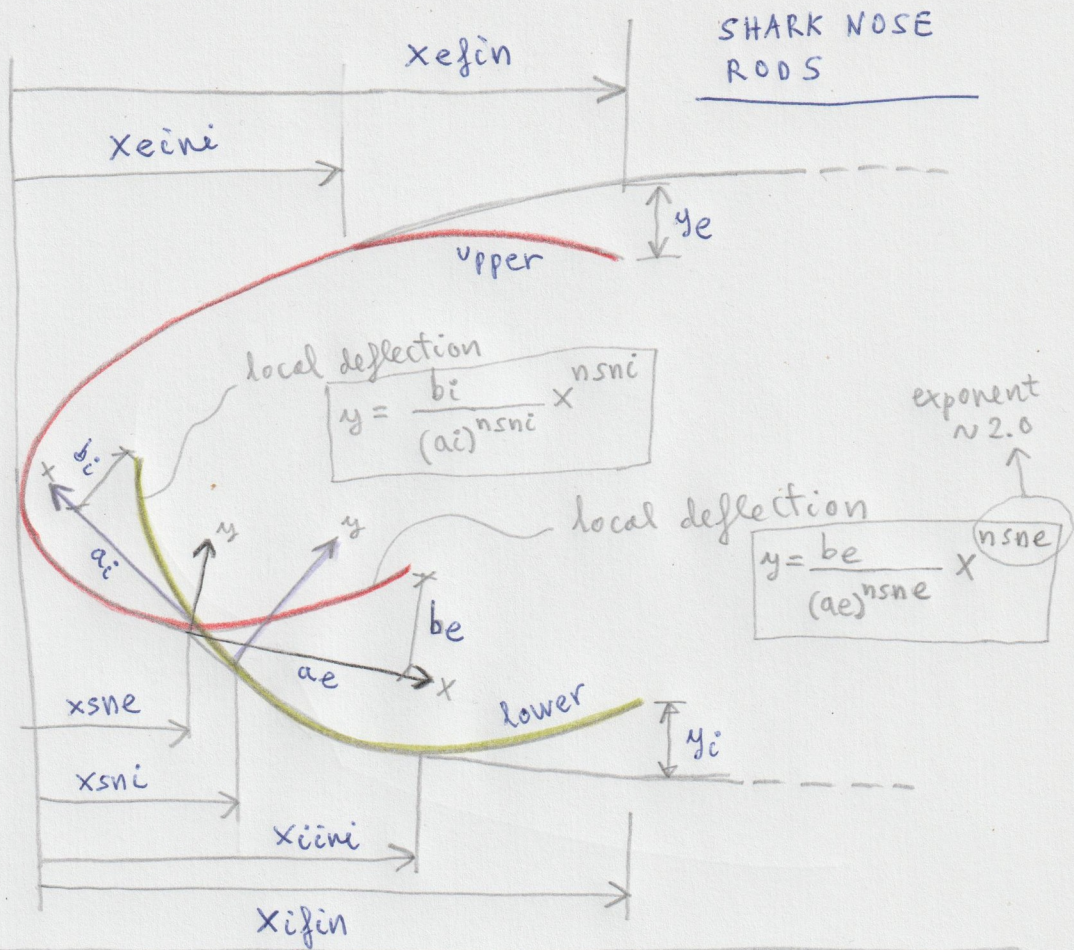 SHARK NOSE
RODS
xefin
xeini
ye
upper
local deflection
y = bi / (ai)^nsni x^nsni
exponent
~ 2.0
bi
x
ai
y
y
local deflection
y = be / (ae)^nsne x^nsne
be
ae
x
xsne
lower
yi
xsni
xiini
xifin